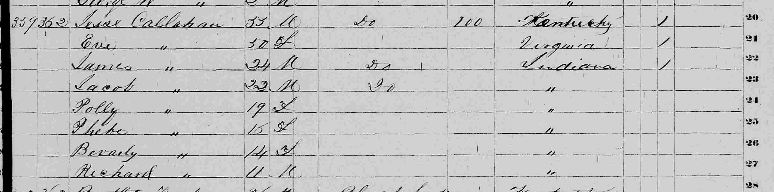 20
359 352 Jesse Callahan 55 M Do 100 Kentucky 1
21
Eve " 50 F Virginia 1
22
James " 24 M Do 1 Indiana 1
23
Jacob " 22 M Do "
24
Polly " 19 F "
25
Phebe " 15 F "
26
Beverly " 14 F "
27
Richard " 11 M "
28